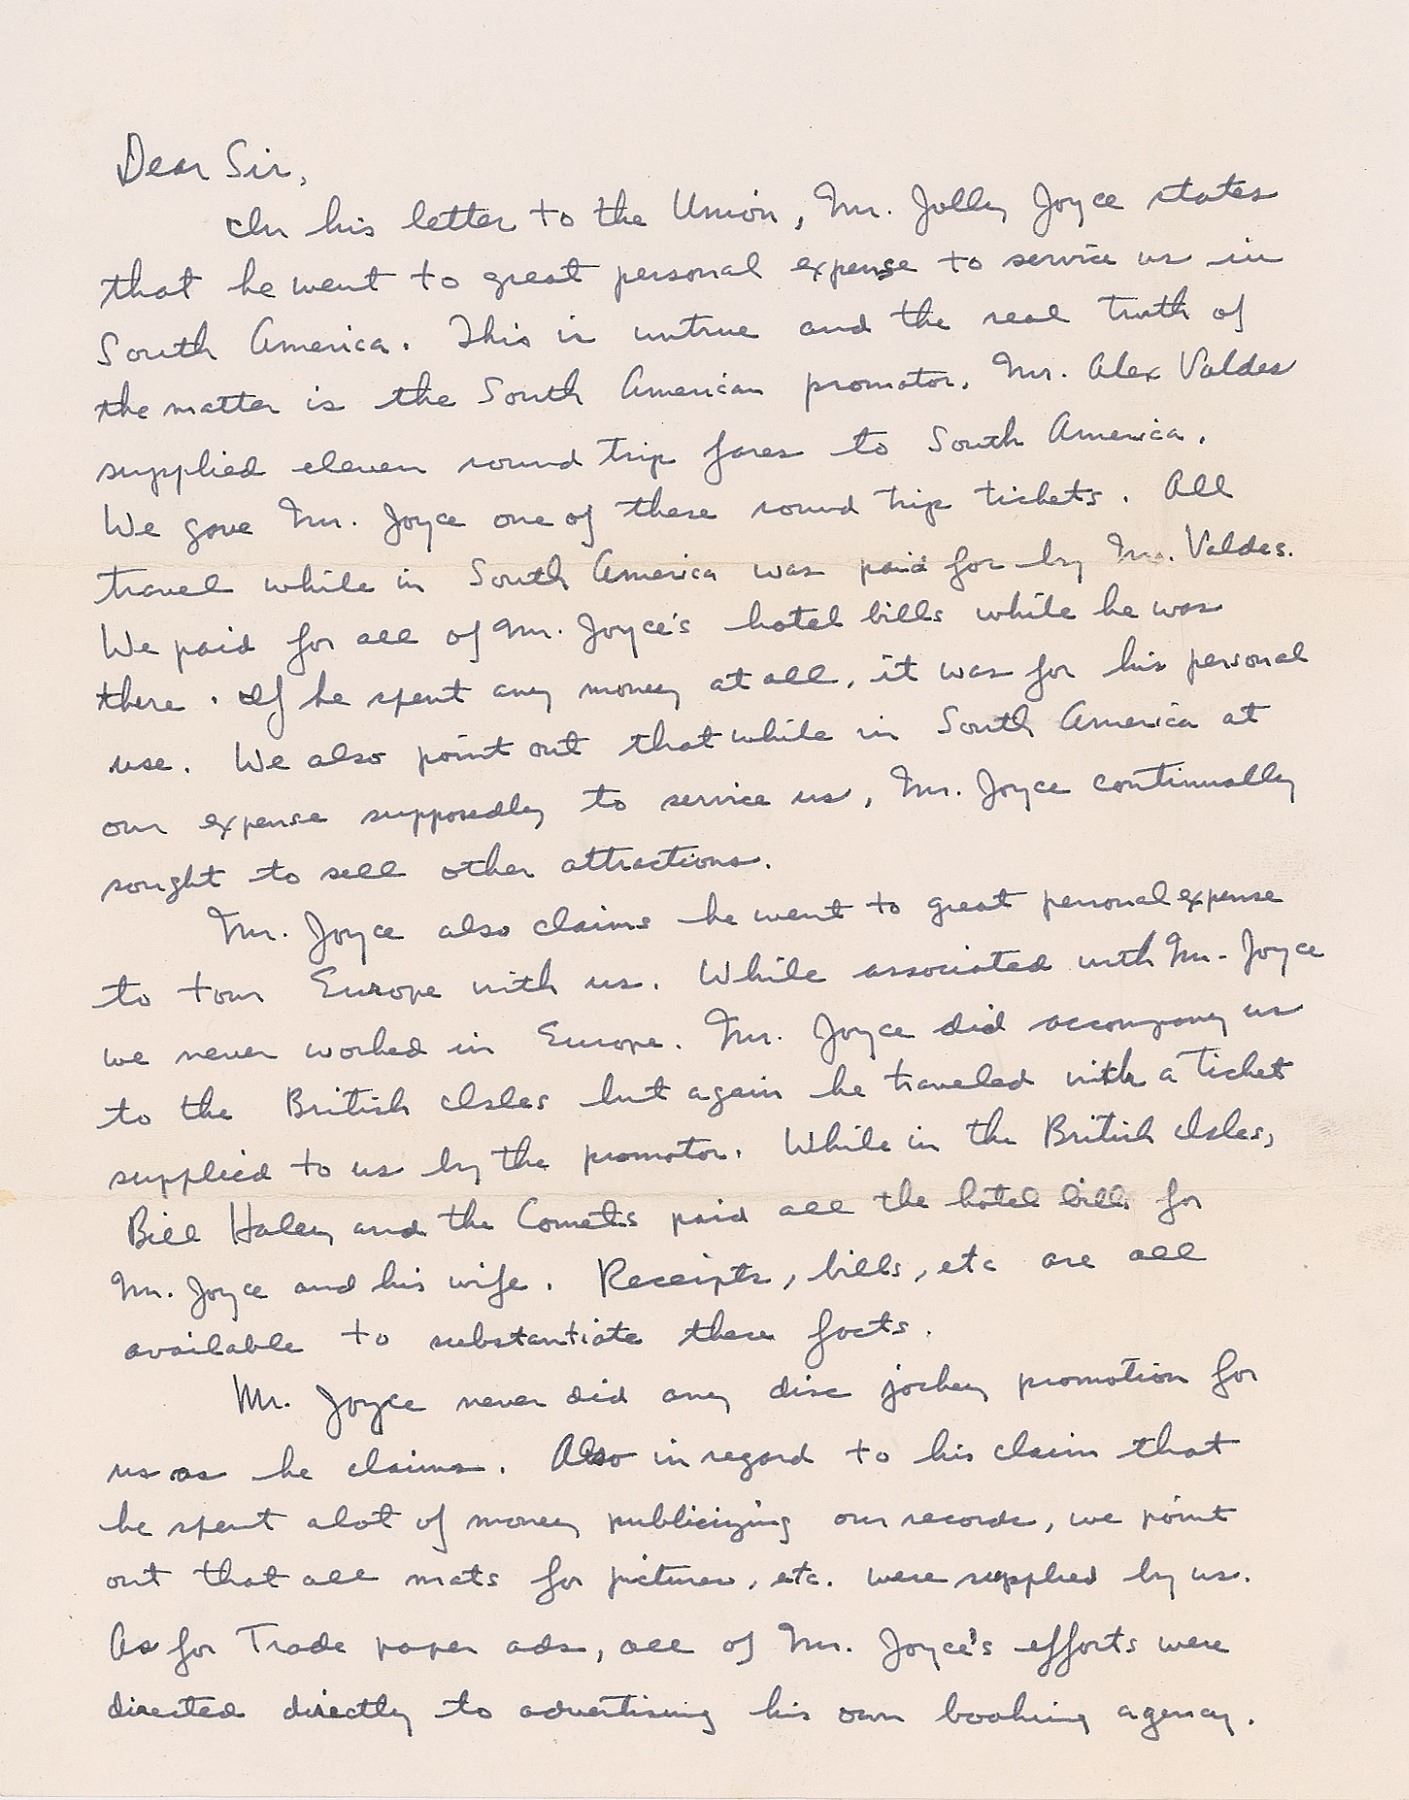 Dear Sir,
In his letter to the Union, Mr. Jolly Joyce states
that he went to great personal expense to service us in
South America. This is untrue and the real truth of
the matter is the South American promotor, Mr. Alex Valdes
supplied eleven round trip fares to South America.
We gave Mr. Joyce one of these round trip tickets. All
travel while in South America was paid for by Mr. Valdes.
We paid for all of Mr. Joyce's hotel bills while he was
there. If he spent any money at all, it was for his personal
use. We also point out that while in South America at
our expense supposedly to service us, Mr. Joyce continually
sought to sell other attractions.
Mr. Joyce also claims he went to great personal expense
to tour Europe with us. While associated with Mr. Joyce
we never worked in Europe. Mr. Joyce did accompany us
to the British Isles but again he traveled with a Ticket
supplied to us by the promotor. While in the British Isles,
Bill Haley and the Comets paid all the hotel bills for
Mr. Joyce and his wife. Receipts, bills, etc are all
available to substantiate these facts.
Mr. Joyce never did any disc jockey promotion for
us as he claims. Also in regard to his claim that
he spent alot of money publicizing our records, we point
out that all mats for pictures, etc. were supplied by us.
As for Trade paper ads, all of Mr. Joyce's efforts were
directed directly to advertising his own booking agency.